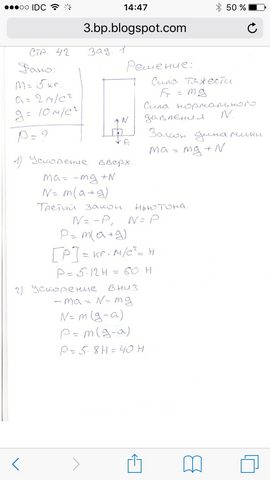 IDC 14:47 50 %
3.bp.blogspot.com
Стр. 42 Зад. 1
Дано:
m = 5 кг
a = 2 м/с²
g = 10 м/с²
P = ?
Решение:
N
Fт
Сила тяжести
Fт = mg
Сила нормального
давления N.
Закон динамики
ma = mg + N
1) Ускорение вверх
ma = -mg + N
N = m(a+g)
Третий закон Ньютона
N = -P, N = P
P = m(a+g)
[P] = кг · м/с² = Н
P = 5·12Н = 60 Н
2) Ускорение вниз
-ma = N - mg
N = m(g-a)
P = m(g-a)
P = 5·8Н = 40 Н